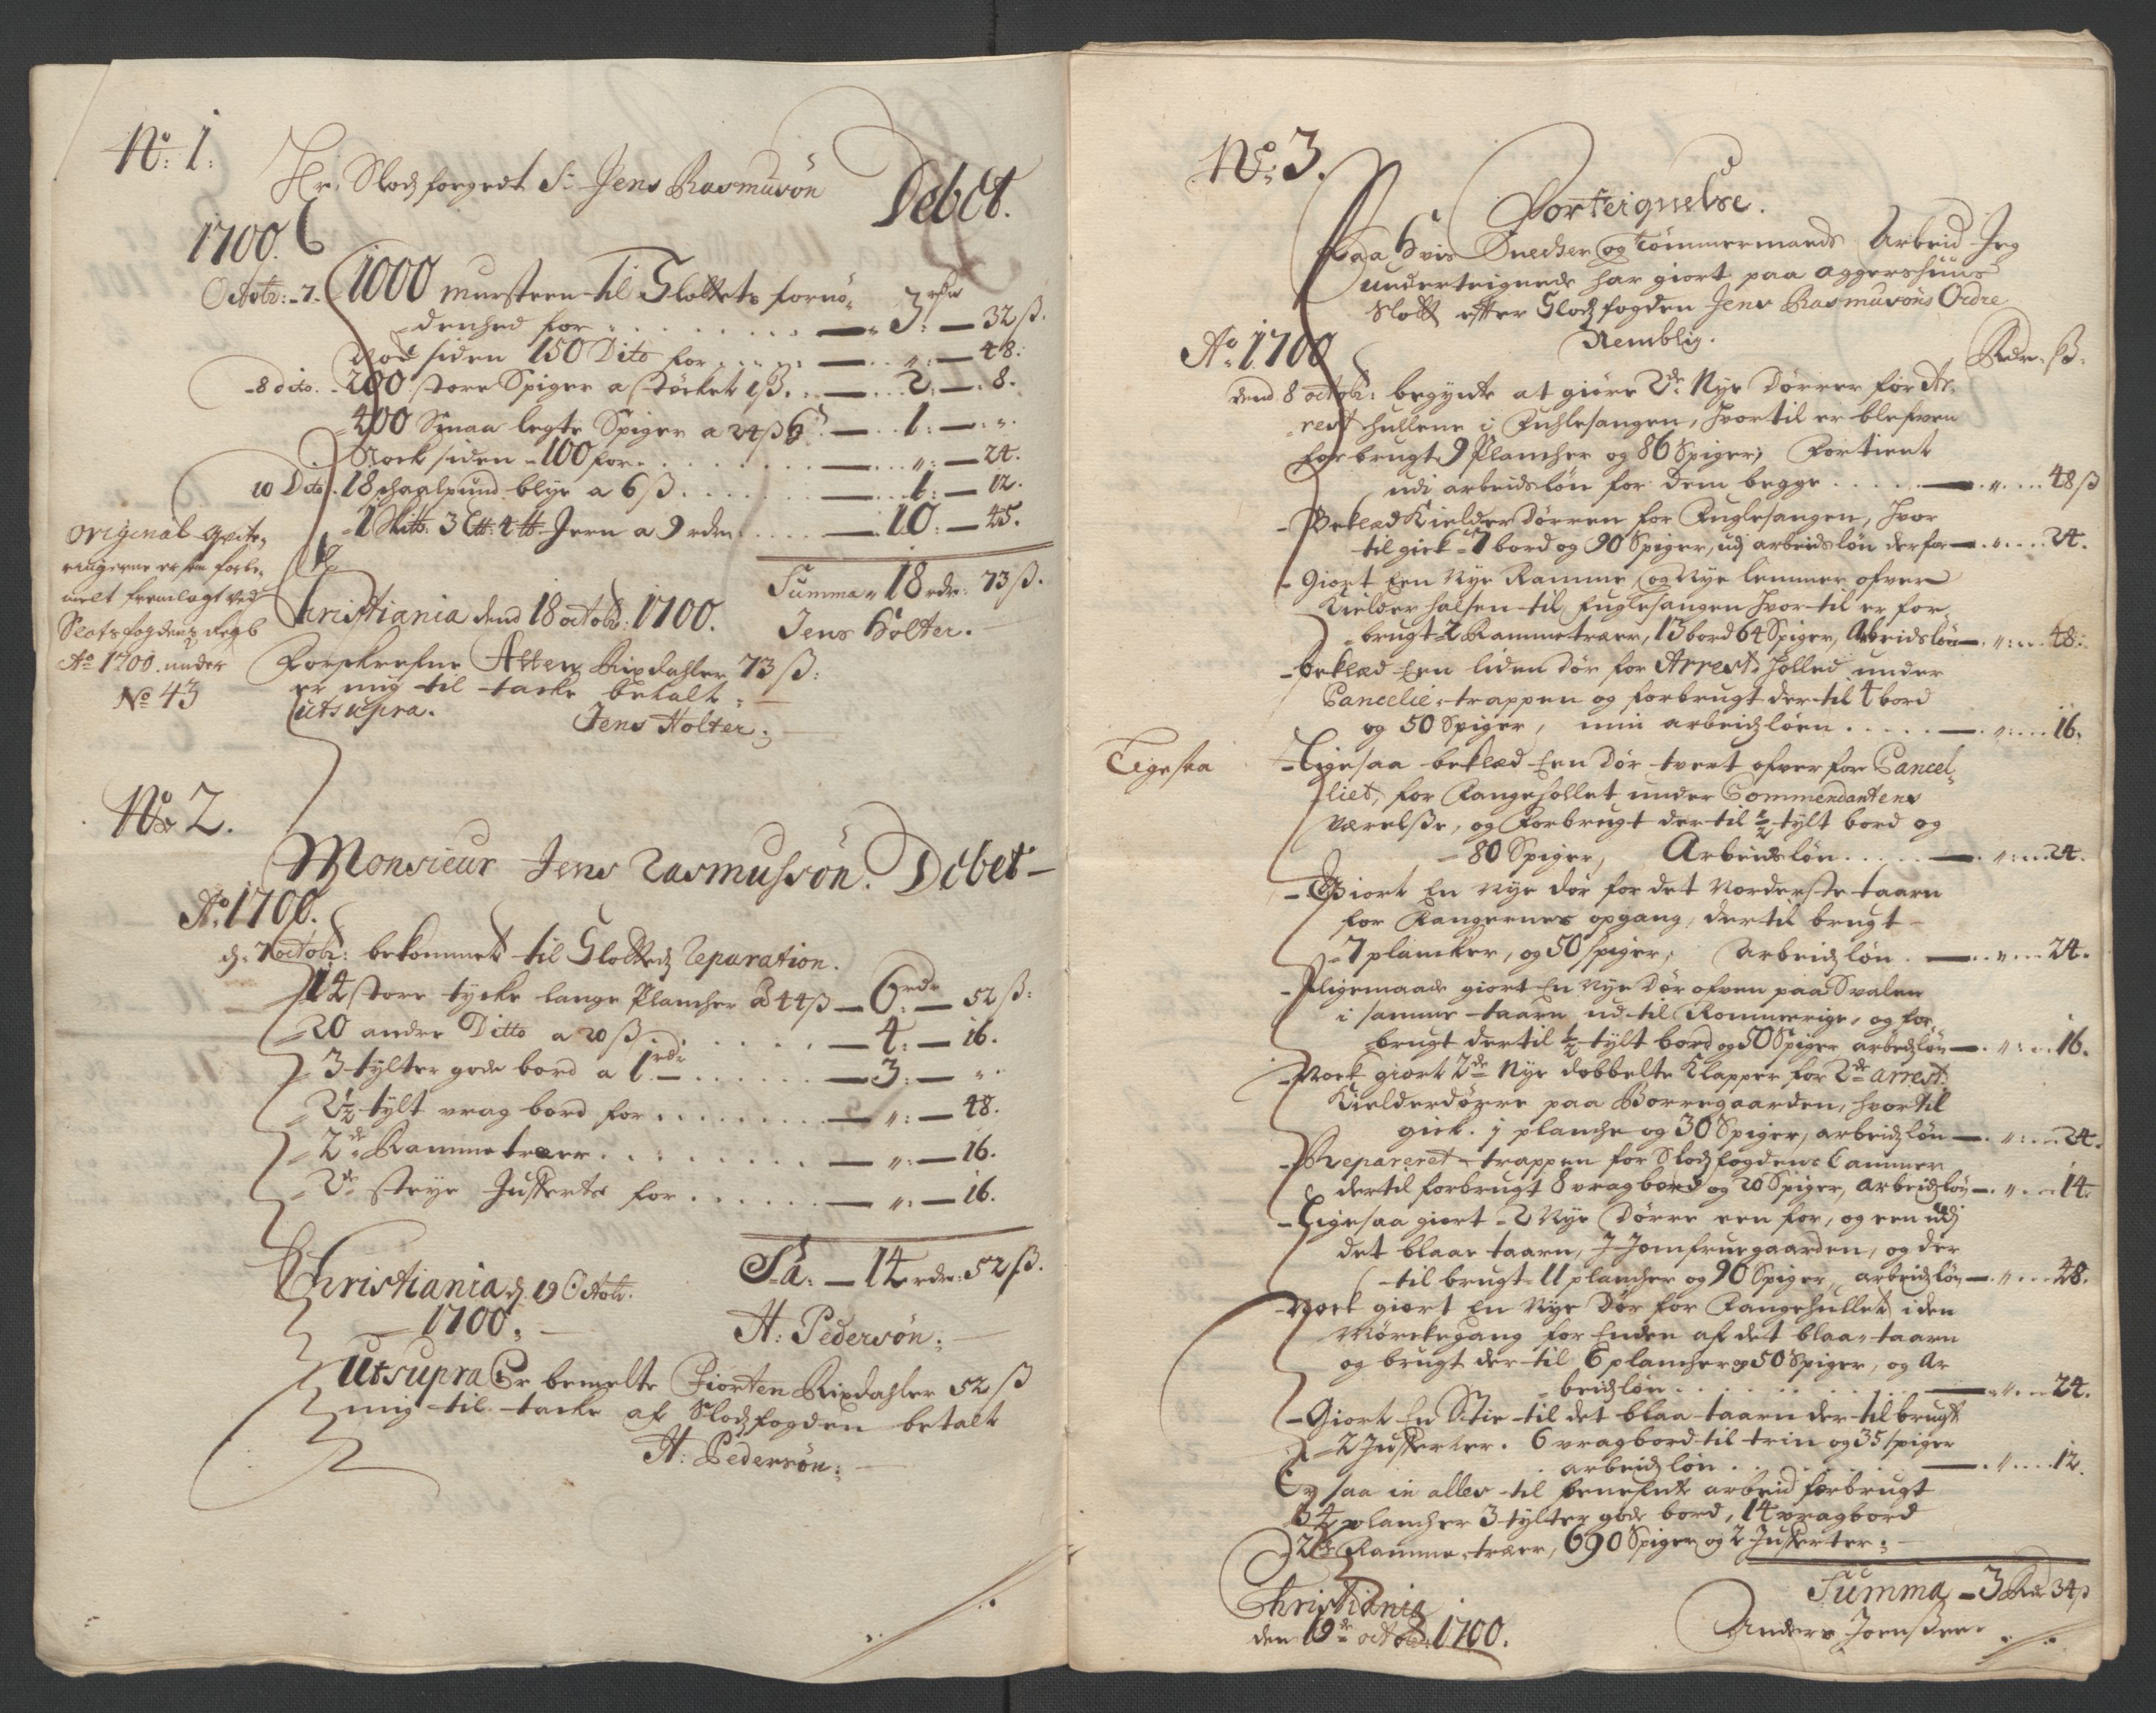 No: 1:
Hr. Slodz foegedt Sr. Jens Rasmusøn Debet.
1700.
Octobr: 7. 1000 muursteen til Slottets fornø-
denhed for . . . . . . . 3 rdr — 32 ß.
Nock siden 150 Dito for . . . . „: — 48:
8 dito. 200 store Spiger a støcket 1 ß. . . 2: — 8.
400 Smaa legte Spiger a 24 ß . . . 1: — „.
Nock siden 100 for . . . . . . . „: — 24.
10 Dito. 18 schaalpund blye a 6 ß . . . . . 1: — 12.
1 Sk℔. 3 L℔: 4 ℔ Jern a 9 rdr . . . . 10: — 45.
Summa 18 rdr: 73 ß.
Original Qvite-
ringerne er som forbe-
melt fremlagt ved
Slotsfogdens Regb
Ao 1700. under
No 43
Christiania dend 18 octobr: 1700.
Jens Holter.
Forskrefne Atten Rixdahler 73 ß:
er mig til tacke betalt
utsupra.
Jens Holter:
No: 2.
Monsieur Jens Rasmussøn. Debet
Ao. 1700.
d. 7 octobr: bekommet til Slottedz Reparation.
14 store tycke lange Plancher a 44 ß — 6 rdr: — 52 ß:
20 andre Ditto a 20 ß . . . . . — 4: — 16.
3 tylter gode bord a 1 rdr . . . . . — 3: — „.
2½ tylt vrag bord for . . . . . . — „: — 48.
2de Rammetræer . . . . . . . — „: — 16.
2de steye Jufferts for . . . . . . — „: — 16.
Sa: — 14 rdr: 52 ß.
Christiania d. 19 Octobr.
1700.
H: Pedersøn:
Utsupra Er bemelte Fiorten Rixdahler 52 ß
mig til tacke af Slodzfogden betalt
H: Pedersøn:
No: 3.
Forteignelse.
Paa Hvis Snecker og Tømmermands Arbeid Jeg
underteignede har giort paa Aggershuus
Slott effter Slodzfogden Jens Rasmusøns Ordre
Nemblig.
Ao. 1700
Rdr. ß.
dend 8 octobr: begynte at giøre 2de Nye Dørrer for Ar-
rest hullene i Fuhlesangen, hvortil er blefven
forbrugt 9 Plancher og 86 Spiger; Fortient
udi arbeidsløn for dem begge . . . . . — „ . . . . 48 ß
Beklæd Kielder Dørren for Fuglesangen, hvor
til gick 7 bord og 90 Spiger, udj arbeidsløn derfor — „ . . . . 24.
Giort Een Nye Ramme og Nye lemmer ofver
Kielder halsen til fuglesangen hvortil er for
brugt 2 Rammetræer, 13 bord 64 Spiger, Arbeidsløn — „: . . . 48:
beklæd Een liden Dør for Arrest hollet under
Cancelie-trappen og forbrugt dertil 4 bord
og 50 Spiger, min arbeidzløen . . . . . — „: . . . 16:
Ligesaa
Ligesaa beklæd Een Dør tvert ofver for Cancel-
liet, for Fangehollet under Commendantens
Værelsse, og forbrugt dertil ½ tylt bord og
80 Spiger, Arbeidsløn . . . . . — „: . . . 24.
Giort En Nye dør for det Norderste taarn
for Fangernes opgang, dertil brugt
7 plancker, og 50 spiger, Arbeidzløn . — „ . . . 24.
Lligemaade giort En Nye Dør ofven paa Svalen
i samme taarn ud til Rommerige, og for
brugt dertil ½ tylt bord og 50 Spiger arbeidzløn — „: . . 16.
Nock giort 2de Nye dobbelte Klapper for 2de Arrest
Kielderdørre paa Borregaarden, hvortil
gick. j planche og 30 Spiger, arbeidzløn — „: . . . 24.
Repareret trappen for Slodzfogdens Cammer
dertil forbrugt 8 vragbord og 20 Spiger, arbeidzløn — „ . . . 14.
Ligesaa giort 2 Nye Dørre een for, og een udj
det blaae taarn, J Jomfruegaarden, og der
til brugt 11 plancher og 90 Spiger, arbeidzløn — „ . . . 48.
Nock giort En Nye Dør for Fangehullet i den
Mørckegang for Enden af det blaa taarn
og brugt der til 6 plancher og 50 Spiger, og Ar
beidzløn . . . . . . . — „ . . . 24.
Giort En Stie til det blaa taarn der til brugt
2 Jufferter. 6 vragbord til trin og 35 spiger
arbeidzløn . . . . . . — „ . . . . 12.
Er saa in alles til benefnte arbeid forbrugt
34 plancher 3 tylter gode bord, 14 vragbord
2de Ramme-træer, 690 Spiger og 2 Jufferter:
Summa — 3 Rdr 34 ß
Christiania
den 19de octobr: 1700.
Anders Joenssen.